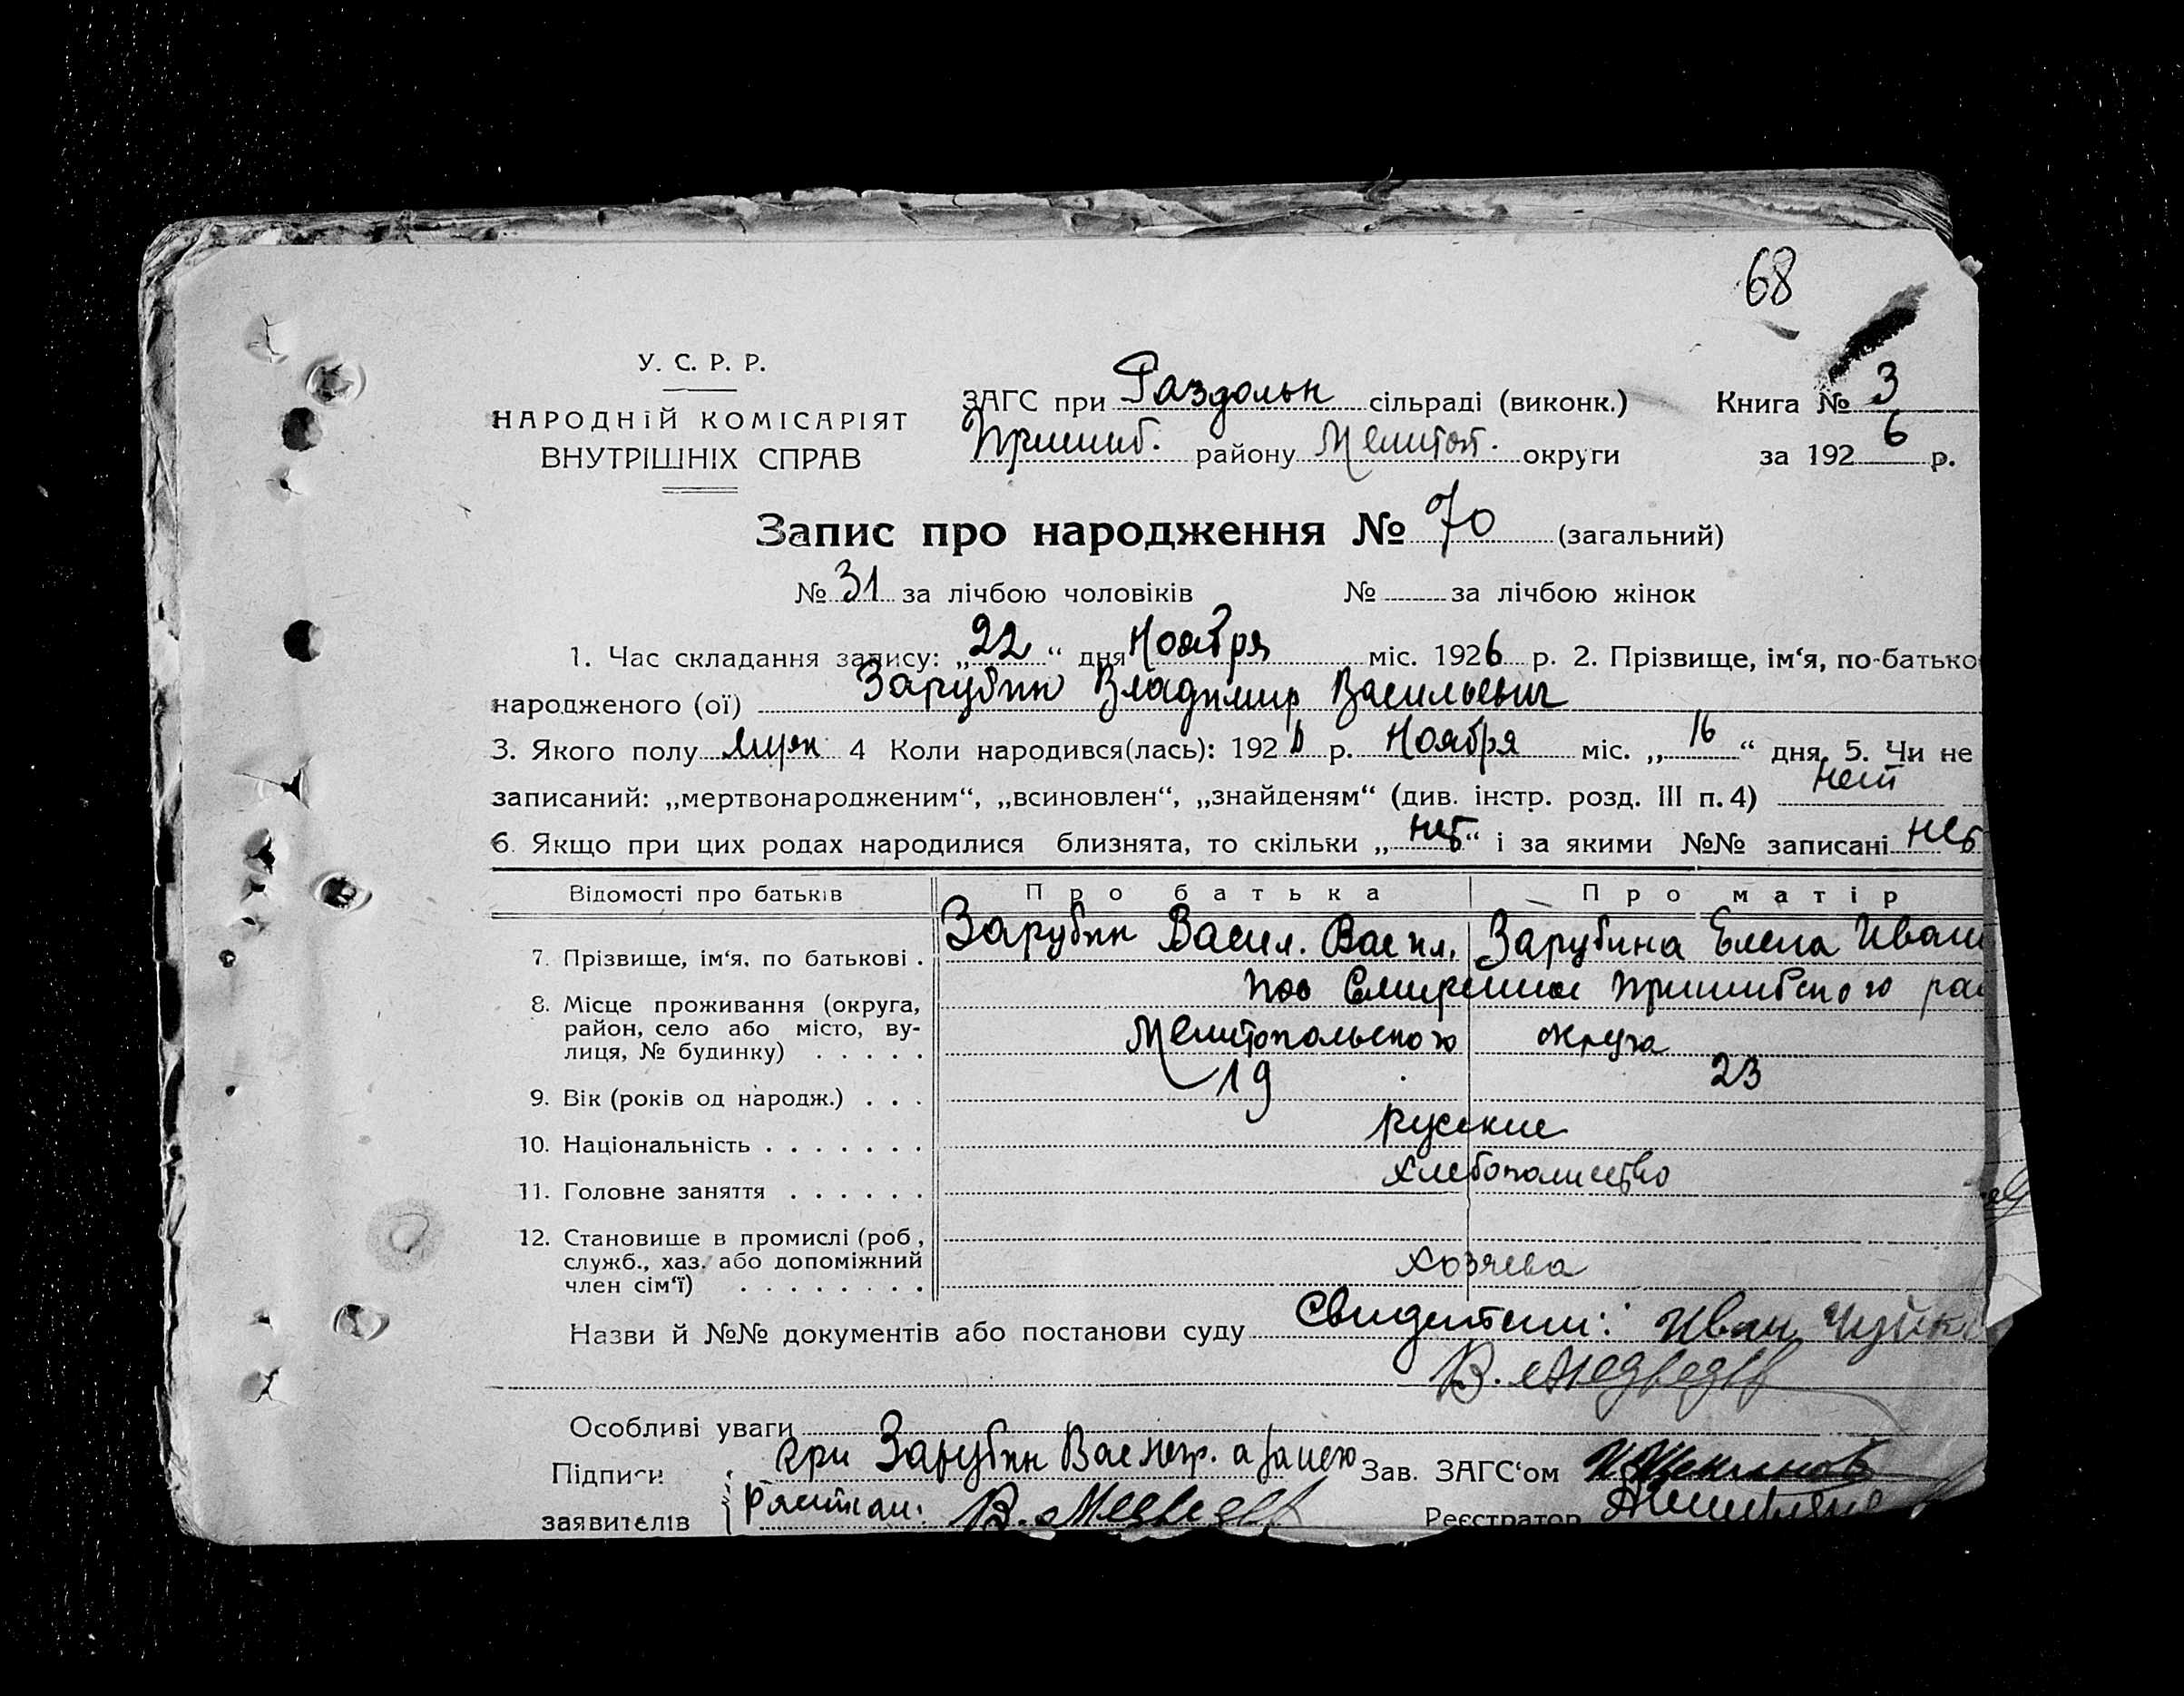 68
У. С. Р. Р.
НАРОДНІЙ КОМІСАРІЯТ
ВНУТРІШНІХ СПРАВ
ЗАГС при Раздольн сільраді (виконк.)
Книга № 3
Пришиб. району Мелитоп. округи
за 1926 р.
Запис про народження № 70 (загальний)
№ 31 за лічбою чоловіків № за лічбою жінок
1. Час складання запису: „22“ дня Ноября міс. 1926 р. 2. Прізвище, ім‘я, по-батько
народженого (ої) Зарубин Владимир Васильевич
3. Якого полу муж 4 Коли народився(лась): 1926 р. Ноября міс. „16“ дня. 5. Чи не
записаний: „мертвонародженим“, „всиновлен“, „знайденям“ (див. інстр. розд. III п. 4) нет
6. Якщо при цих родах народилися близнята, то скільки „нет“ і за якими №№ записані нет
Відомості про батьків Про батька Про матір
7. Прізвище, ім‘я, по батькові . Зарубин Васил. Васил. Зарубина Елена Иван
8. Місце проживання (округа, район, село або місто, ву-
лиця, № будинку) . . . . . Пришибского ра
Мелитопольского округа
9. Вік (років од народж.) . . . 19 23
10. Національність . . . . . . . русские
11. Головне заняття . . . . . . хлебопашество
12. Становище в промислі (роб,
служб., хаз. або допоміжний
член сім‘ї) . . . . . . . . хозяева
Назви й №№ документів або постанови суду Свидетели: Иван Чуйк
В. Медведев
Особливі уваги
Підписи Зарубин Вас негр. а за него Зав. ЗАГС‘ом
заявителів В. Медведев Реєстратор